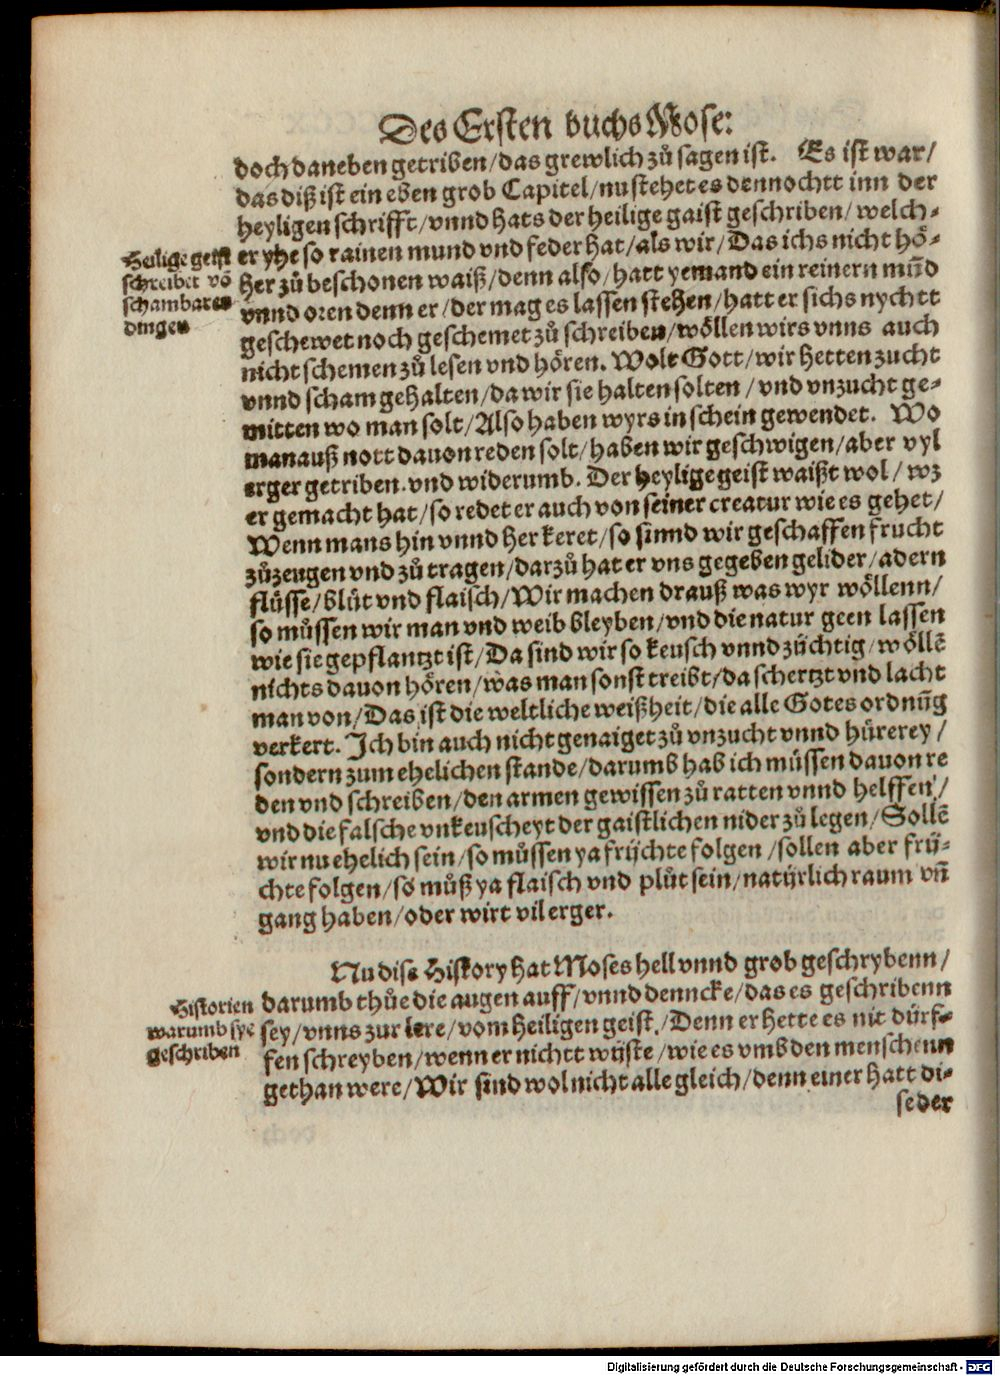 Des Ersten buchs Mose:
doch daneben getriben/das grewlich zů sagen ist. Es ist war/
das diß ist ein eben grob Capitel/nu stehet es dennochtt inn der
heyligen schrifft/vnnd hats der heilige gaist geschriben/welch-
Heilige geist
schreibet vō
schambaren
dingen
er yhe so rainen mund vnd feder hat/als wir/Das ichs nicht hö-
her zů beschonen waiß/denn also/hatt yemand ein reinern mūd
vnnd oren denn er/der mag es lassen stehen/hatt er sichs nychtt
geschewet noch geschemet zů schreiben/wöllen wirs vnns auch
nicht schemen zů lesen vnd hören. Wolt Gott/wir hetten zucht
vnnd scham gehalten/da wir sie halten solten/vnd vnzucht ge-
mitten wo man solt/Also haben wyrs in schein gewendet. Wo
man auß nott dauon reden solt/haben wir geschwigen/aber vyl
erger getriben.vnd widerumb. Der heylige geist waißt wol/wz
er gemacht hat/so redet er auch von seiner creatur wie es gehet/
Wenn mans hin vnnd her keret/so sinnd wir geschaffen frucht
zůzeugen vnd zů tragen/darzů hat er vns gegeben gelider/adern
flüsse/blůt vnd flaisch/Wir machen drauß was wyr wöllenn/
so müssen wir man vnd weib bleyben/vnd die natur geen lassen
wie sie gepflantzt ist/Da sind wir so keusch vnnd züchtig/wöllē
nichts dauon hören/was man sonst treibt/da schertzt vnd lacht
man von/Das ist die weltliche weißheit/die alle Gotes ordnūg
verkert. Ich bin auch nicht genaiget zů vnzucht vnnd hůrerey/
sondern zum ehelichen stande/darumb hab ich müssen dauon re
den vnd schreiben/den armen gewissen zů ratten vnnd helffen/
vnd die falsche vnkeuscheyt der gaistlichen nider zů legen/Sollē
wir nu ehelich sein/so müssen ya frÿchte folgen/sollen aber frÿ-
chte folgen/so můß ya flaisch vnd plůt sein/natÿrlich raum vn̄
gang haben/oder wirt vil erger.
Nu dise History hat Moses hell vnnd grob geschrybenn/
Historien
warumb sye
geschriben
darumb thůe die augen auff/vnnd denncke/das es geschribenn
sey/vnns zur lere/vom heiligen geist/Denn er hette es nit dürf-
fen schreyben/wenn er nichtt wÿste/wie es vmb den menschenn
gethan were/Wir sind wol nicht alle gleich/denn einer hatt di-
se der
Digitalisierung gefördert durch die Deutsche Forschungsgemeinschaft - DFG